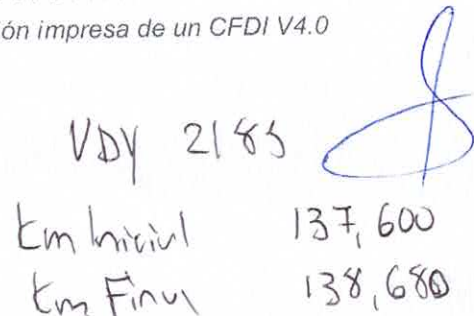 ón impresa de un CFDI V4.0
VDY 2183
Km Inicial 137,600
Km Final 138,680